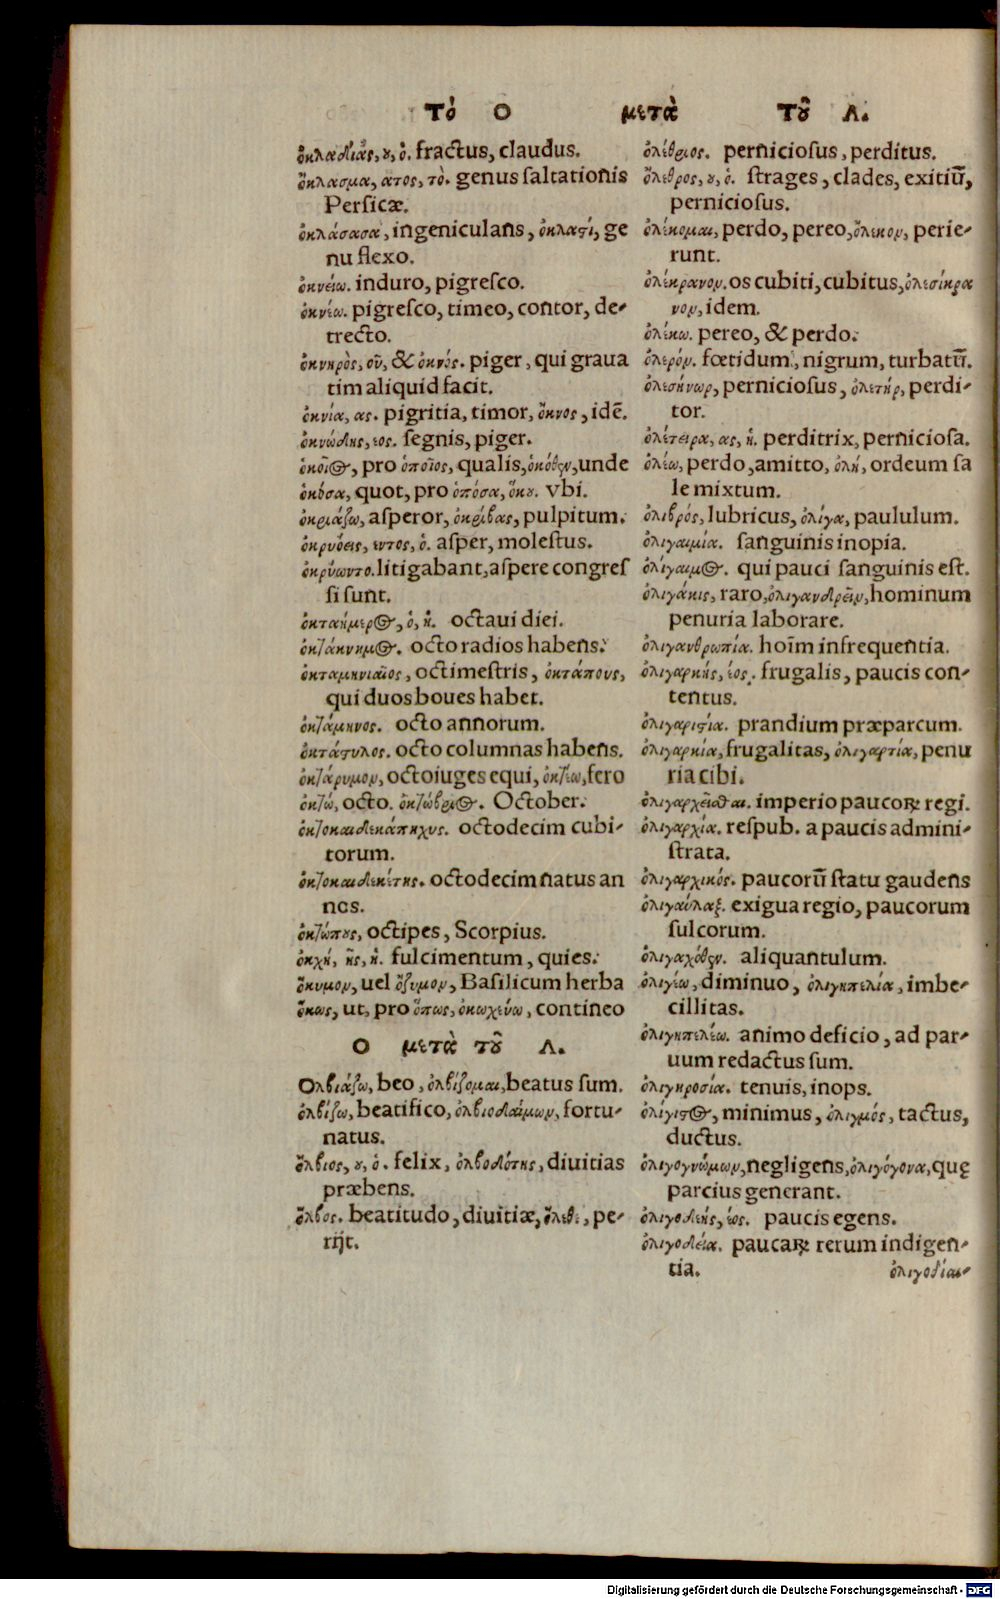 Τὸ Ο μετὰ τοῦ Λ.
ὀκλαδίας, ου, ὁ. fractus, claudus.
ὄκλασμα, ατος, τὸ. genus ſaltationis
Perſicæ.
ὀκλάσασα, ingeniculans, ὀκλαςί, ge
nu flexo.
ὀκνείω. induro, pigreſco.
ὀκνέω. pigreſco, timeo, contor, de-
trecto.
ὀκνηρὸς, οῦ, & ὀκνός. piger, qui graua
tim aliquid facit.
ὀκνία, ας. pigritia, timor, ὄκνος, idē.
ὀκνώδης, εος. ſegnis, piger.
ὁκοῖος, pro ὁποῖος, qualis, ὁκόθεν, unde
ὁκόσα, quot, pro ὁπόσα, ὅκου. vbi.
ὀκριάζω, aſperor, ὀκρίβας, pulpitum.
ὀκρυόεις, εντος, ὁ. aſper, moleſtus.
ὀκρύωντο. litigabant, aſpere congreſ
ſi ſunt.
ὀκταήμερος, ὁ, ἡ. octaui diei.
ὀκτάκνημος. octo radios habens.
ὀκταμηνιαῖος, octimeſtris, ὀκτάπους,
qui duos boues habet.
ὀκτάμηνος. octo annorum.
ὀκτάςυλος. octo columnas habens.
ὀκτάρυμον, octoiuges equi, ὀκτέω, fero
ὀκτώ, octo. ὀκτώβριος. October.
ὀκτοκαιδεκάπηχυς. octodecim cubi-
torum.
ὀκτοκαιδεκέτης. octodecim natus an
nos.
ὀκτώπους, octipes, Scorpius.
ὀκχή, ῆς, ἡ. fulcimentum, quies.
ὄκυμον, uel ὄζυμον, Baſilicum herba
ὅκως, ut, pro ὅπως, ὀκωχεύω, contineo
Ο μετὰ τοῦ Λ.
Ολβιάζω, beo, ὀλβίζομαι, beatus ſum.
ὀλβίζω, beatifico, ὀλβιοδαίμων, fortu-
natus.
ὄλβιος, ου, ὁ. felix, ὀλβοδότης, diuitias
præbens.
ὄλβος. beatitudo, diuitiæ, ὄλεθε, pe-
rijt.
ὀλέθριος. pernicioſus, perditus.
ὄλεθρος, ου, ὁ. ſtrages, clades, exitiū,
pernicioſus.
ὀλέκομαι, perdo, pereo, ὄλεκον, perie-
runt.
ὀλέκρανον. os cubiti, cubitus, ὀλεσίκρα
νον, idem.
ὀλέκω. pereo, & perdo.
ὀλερόν. fœtidum, nigrum, turbatū.
ὀλεσήνωρ, pernicioſus, ὀλετήρ, perdi-
tor.
ὀλέτειρα, ας, ἡ. perditrix, pernicioſa.
ὀλέω, perdo, amitto, ὀλή, ordeum ſa
le mixtum.
ὀλιβρός, lubricus, ὀλίγα, paululum.
ὀλιγαιμία. ſanguinis inopia.
ὀλίγαιμος. qui pauci ſanguinis eſt.
ὀλιγάκις, raro, ὀλιγανδρεῖν, hominum
penuria laborare.
ὀλιγανθρωπία. hoīm infrequentia.
ὀλιγαρκής, έος. frugalis, paucis con-
tentus.
ὀλιγαριςία. prandium præparcum.
ὀλιγαρκία, frugalitas, ὀλιγαρτία, penu
ria cibi.
ὀλιγαρχεῖσθαι. imperio paucoꝝ regi.
ὀλιγαρχία. reſpub. a paucis admini-
ſtrata.
ὀλιγαρχικός. paucorū ſtatu gaudens
ὀλιγαύλαξ. exigua regio, paucorum
ſulcorum.
ὀλιγαχόθεν. aliquantulum.
ὀλιγέω, diminuo, ὀλιγηπελία, imbe-
cillitas.
ὀλιγηπελέω. animo deficio, ad par-
uum redactus ſum.
ὀλιγηροσία. tenuis, inops.
ὀλίγιςος, minimus, ὀλιγμός, tactus,
ductus.
ὀλιγογνώμων, negligens, ὀλιγόγονα, quę
parcius generant.
ὀλιγοδεής, έος. paucis egens.
ὀλιγοδεία. paucaꝝ rerum indigen-
tia.
ὀλιγοδίαι-
Digitalisierung gefördert durch die Deutsche Forschungsgemeinschaft - DFG